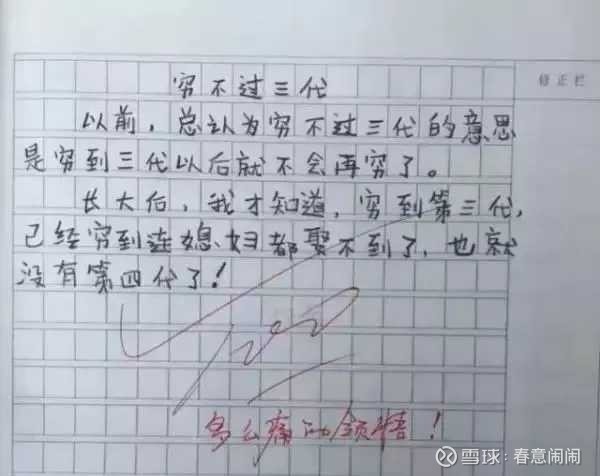 穷不过三代
修正栏
以前，总认为穷不过三代的意思
是穷到三代以后就不会再穷了。
长大后，我才知道，穷到第三代，
已经穷到连媳妇都娶不到了，也就
没有第四代了！
100
多么痛的领悟！
雪球：春意闹闹